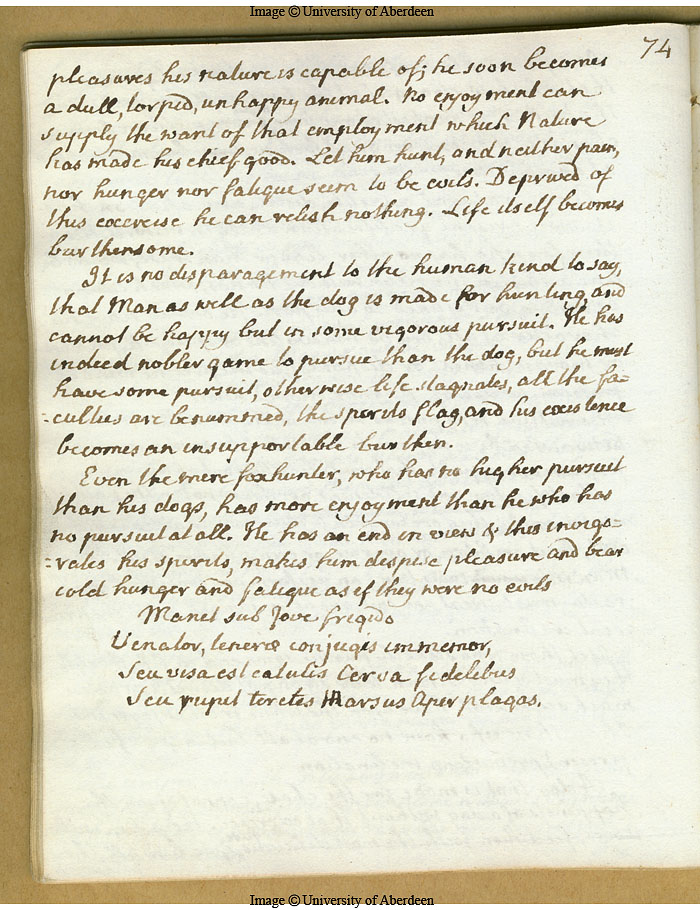 Image © University of Aberdeen
74
pleasures his nature is capable of; he soon becomes
a dull, torpid, unhappy animal. No enjoyment can
supply the want of that employment which Nature
has made his chief good. Let him hunt, and neither pain,
nor hunger nor fatigue seem to be evils. Deprived of
this exercise he can relish nothing. Life itself becomes
burthensome.
It is no disparagement to the human kind to say,
that Man as well as the dog is made for hunting, and
cannot be happy but in some vigorous pursuit. He has
indeed nobler game to pursue than the dog, but he must
have some pursuit, otherwise life stagnates, all the fa=
=culties are benummed, the spirits flag, and his existence
becomes an insupportable burthen.
Even the mere foxhunter, who has no higher pursuit
than his dogs, has more enjoyment than he who has
no pursuit at all. He has an end in view & this invigo=
=rates his spirits, makes him despise pleasure and bear
cold hunger and fatigue as if they were no evils
Manet sub Jove frigido
Venator, teneræ conjugis immemor,
Seu visa est catulis Cerva fidelibus
Seu rupit teretes Marsus Aper plagas.
Image © University of Aberdeen